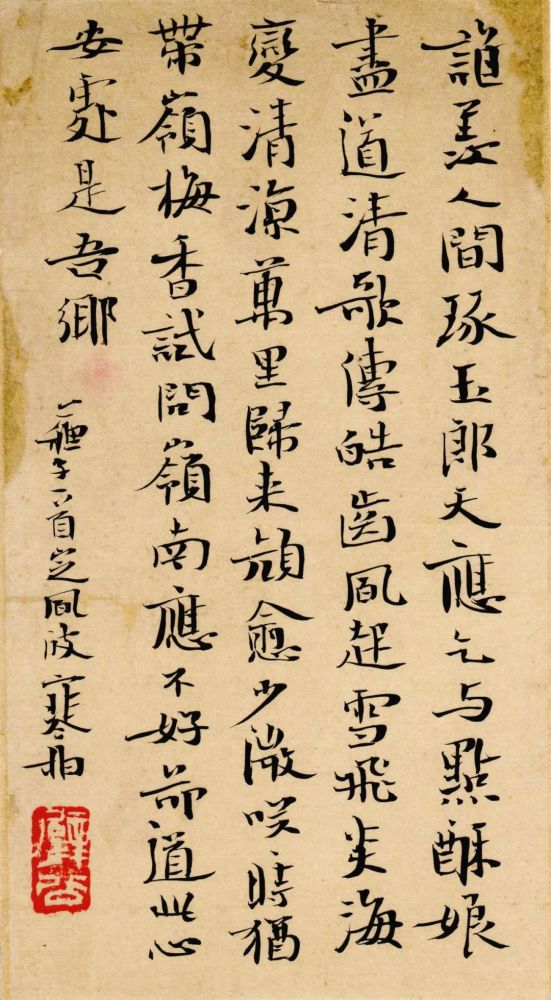 誰羨人間琢玉郎天應乞与點酥娘
盡道清歌傳皓齒風起雪飛炎海
變清涼萬里歸来顔愈少微咲〻時猶
帶嶺梅香試問嶺南應不好却道此心
安處是吾鄉
蘓子一首定風波